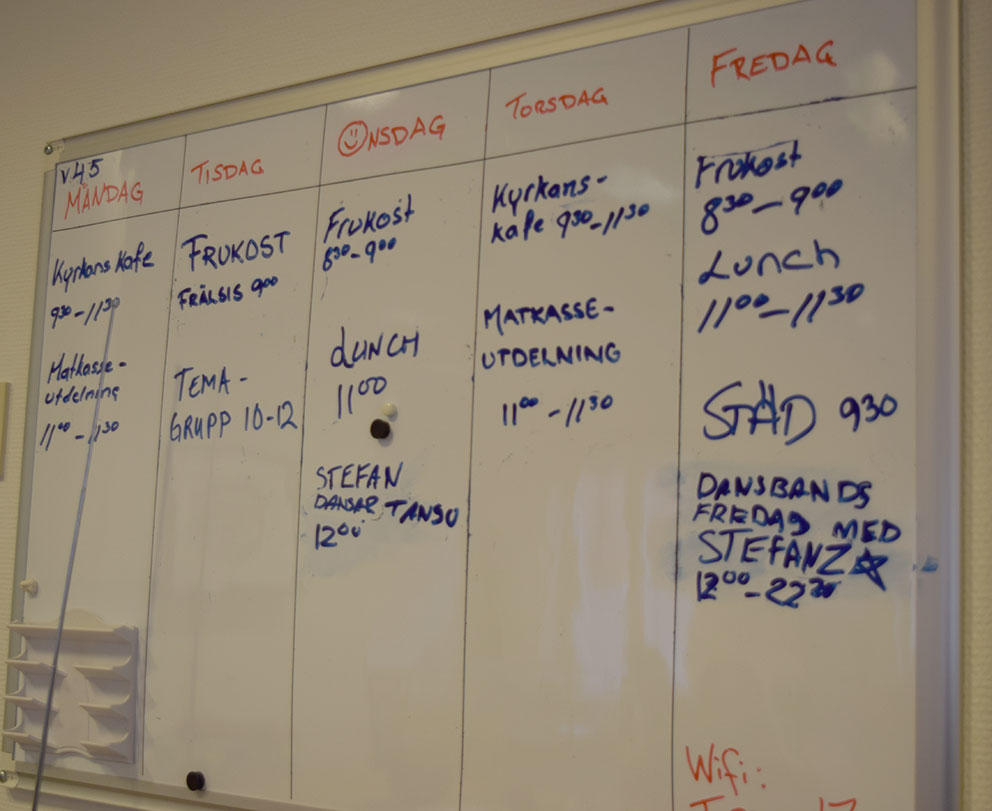 v.45
MÅNDAG
Kyrkans Kafe
9³⁰-11³⁰
Matkasse-
utdelning
11⁰⁰-11³⁰
TISDAG
FRUKOST
FRÄLSIS 9⁰⁰
TEMA-
GRUPP 10-12
ONSDAG
Frukost
8³⁰-9⁰⁰
LUNCH
11⁰⁰
STEFAN
DANSAR TANGO
12⁰⁰
TORSDAG
Kyrkans-
kafe 9³⁰-11³⁰
MATKASSE-
UTDELNING
11⁰⁰-11³⁰
FREDAG
Frukost
8³⁰-9⁰⁰
Lunch
11⁰⁰-11³⁰
STÄD 930
DANSBANDS
FREDAG MED
STEFANZ
12⁰⁰-22³⁰
Wifi: